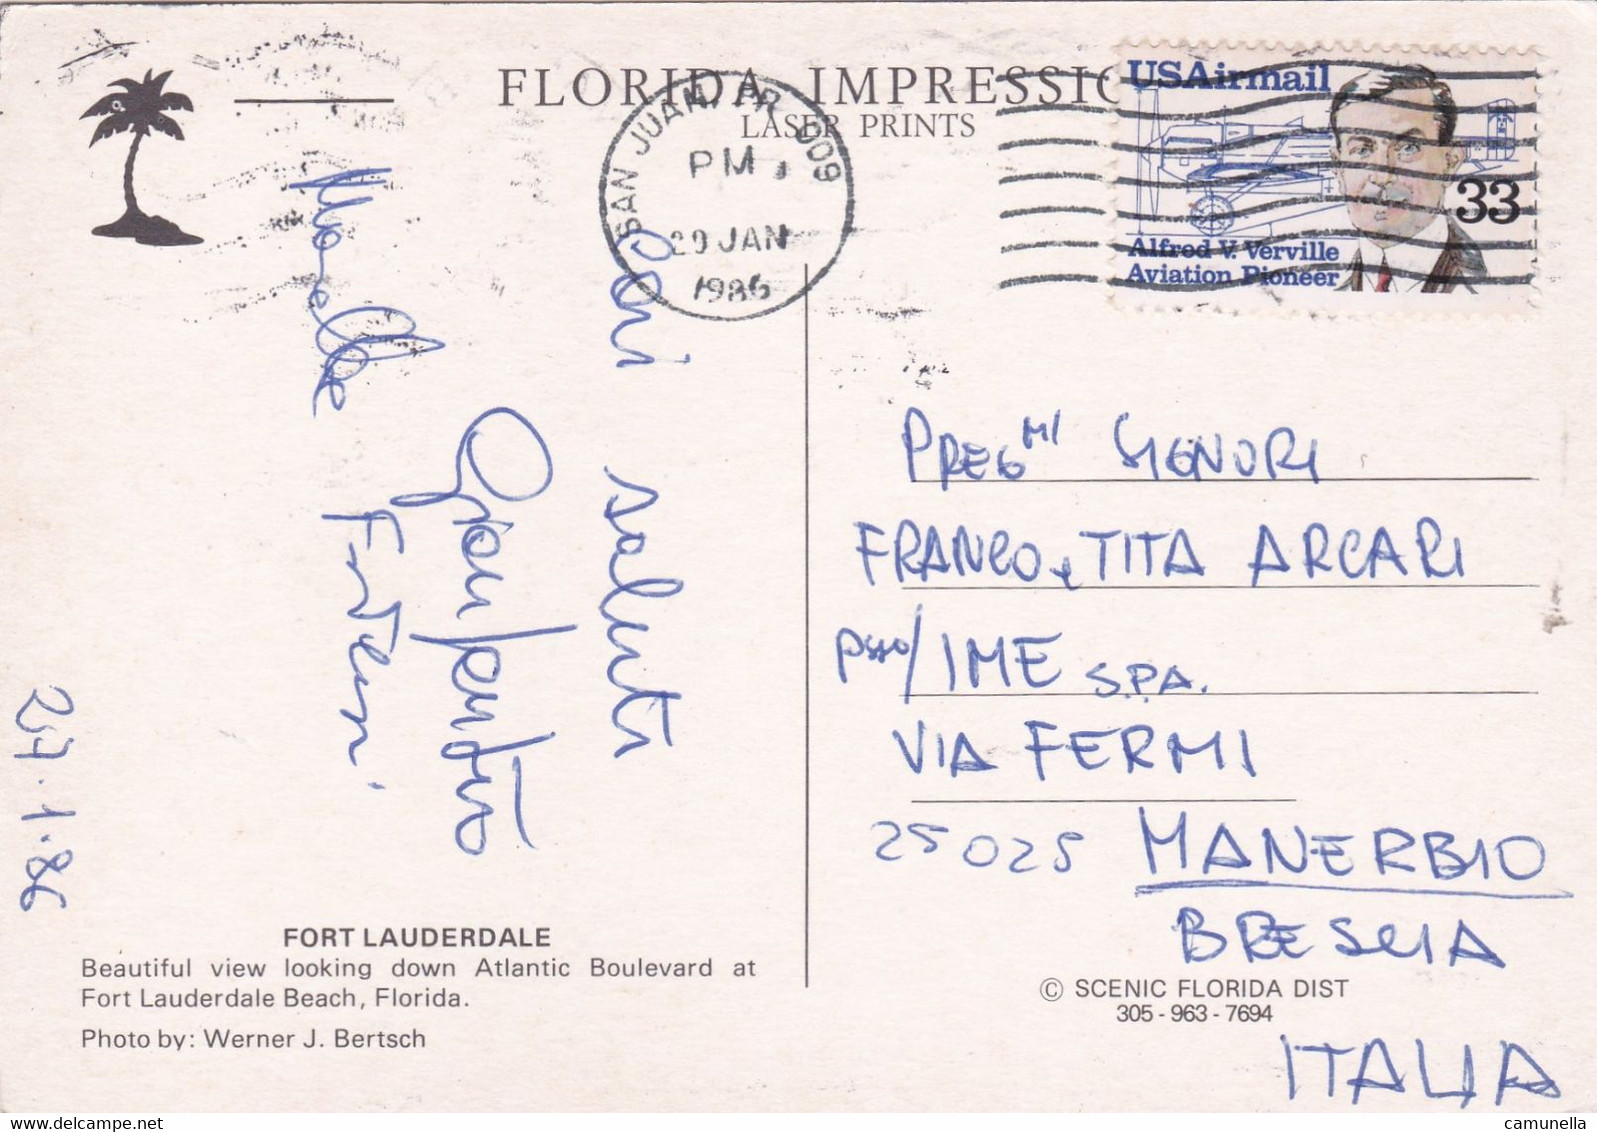 FLORIDA IMPRESSIO
LASER PRINTS
SAN JUAN, PR 009
PM
29 JAN
1986
USAirmail
33
Alfred V. Verville
Aviation Pioneer
Cari saluti
Gianfausto
PREG MI SIGNORI
FRANCO e TITA ARCARI
/IME S.P.A.
VIA FERMI
25025 MANERBIO
BRESCIA
ITALIA
24.1.86
FORT LAUDERDALE
Beautiful view looking down Atlantic Boulevard at
Fort Lauderdale Beach, Florida.
Photo by: Werner J. Bertsch
© SCENIC FLORIDA DIST
305-963-7694
camunella